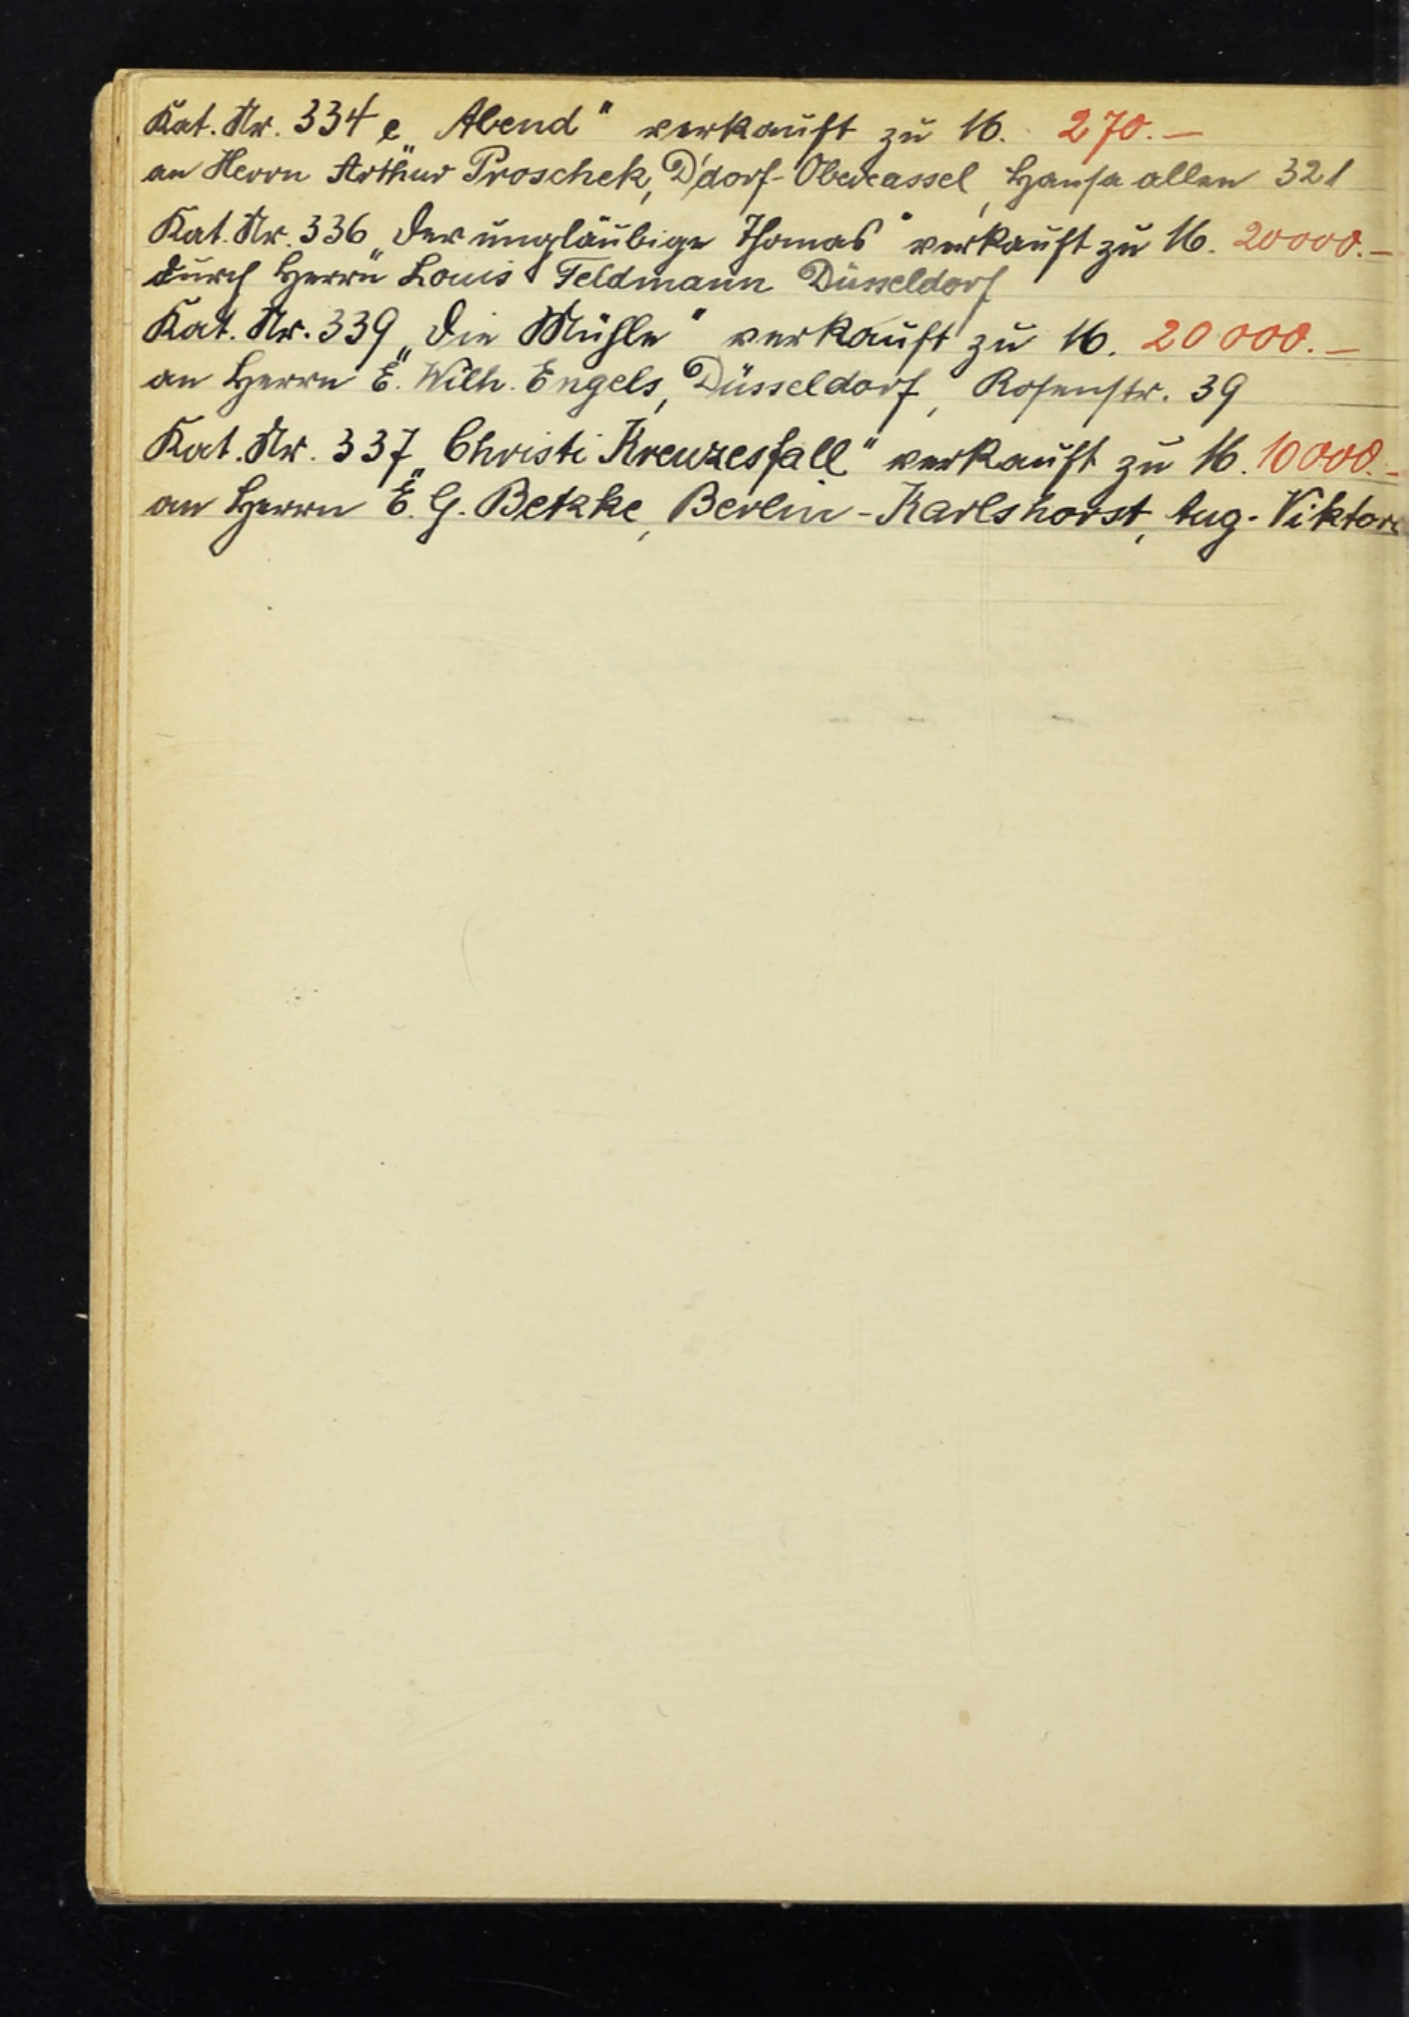 Kat. Nr. 334 e „Abend" verkauft zu M. 270.—
an Herrn Arthur Proschek, D'dorf-Obercassel, Hansaallee 321
Kat. Nr. 336 „Der ungläubige Thomas" verkauft zu M. 20000.—
durch Herrn Louis Feldmann Düsseldorf
Kat. Nr. 339 „Die Mühle" verkauft zu M. 20000.—
an Herrn E. Wilh. Engels, Düsseldorf, Rosenstr. 39
Kat. Nr. 337 „Christi Kreuzesfall" verkauft zu M. 10000.—
an Herrn E. G. Betzke, Berlin-Karlshorst, Aug.-Viktori